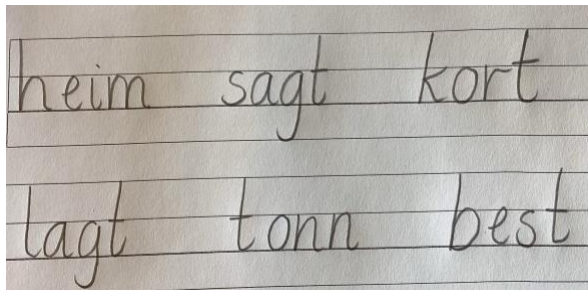 heim sagt kort
lagt tonn best